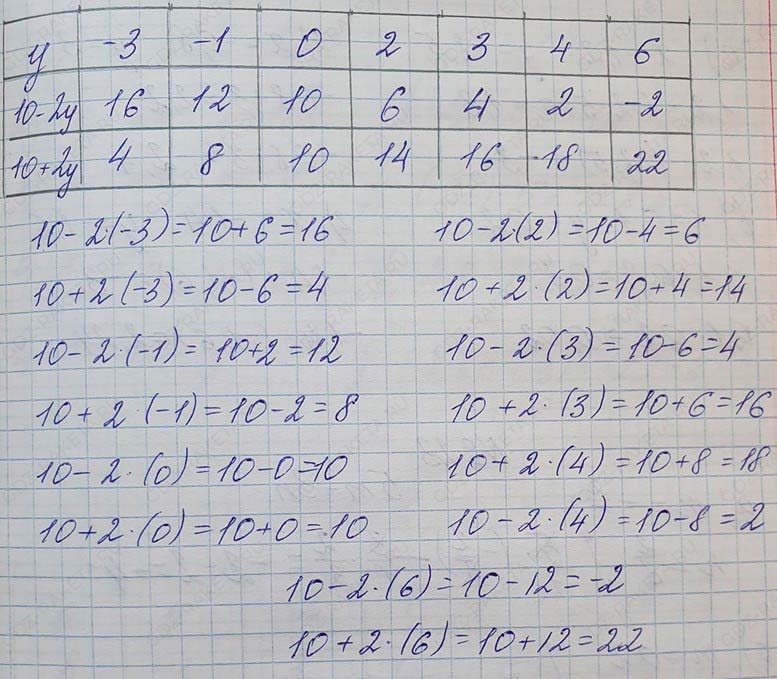 y -3 -1 0 2 3 4 6
10-2y 16 12 10 6 4 2 -2
10+2y 4 8 10 14 16 18 22
10-2·(-3)=10+6=16 10-2·(2)=10-4=6
10+2(-3)=10-6=4 10+2·(2)=10+4=14
10-2·(-1)=10+2=12 10-2·(3)=10-6=4
10+2·(-1)=10-2=8 10+2·(3)=10+6=16
10-2·(0)=10-0=10 10+2·(4)=10+8=18
10+2·(0)=10+0=10 10-2·(4)=10-8=2
10-2·(6)=10-12=-2
10+2·(6)=10+12=22